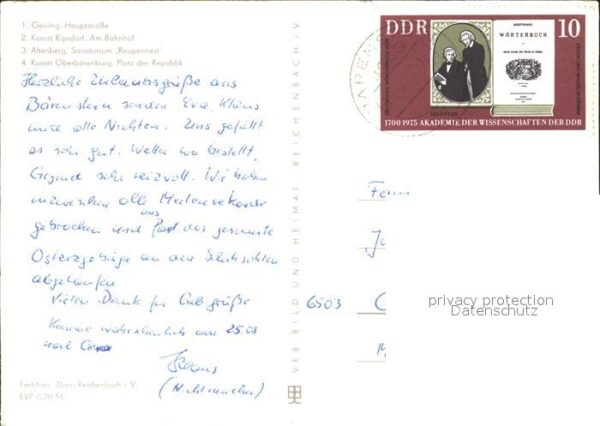 1. Geising, Hauptstraße
2. Kurort Kipsdorf, Am Bahnhof
3. Altenberg, Sanatorium „Raupennest"
4. Kurort Oberbärenburg, Platz der Republik
Herzliche Urlaubsgrüße aus
Bärenstein senden Eva, Klaus
und alle Nichten. Uns gefällt
es sehr gut. Wetter wie bestellt,
Gegend sehr reizvoll. Wir haben
inzwischen alle Meilenrekorde
gebrochen und uns fast das gesamte
Osterzgebirge an den Schuhsohlen
abgelaufen
Vielen Dank für Grüße
Komme wahrscheinlich am 25.08
nach
Klaus
(Nichtraucher)
Farbfoto: Darr, Reichenbach i. V.
EVP 0,20 M
VEB BILD UND HEIMAT REICHENBACH i. V.
DDR
10
WÖRTERBUCH
1700-1975 AKADEMIE DER WISSENSCHAFTEN DER DDR
6503
privacy protection
Datenschutz